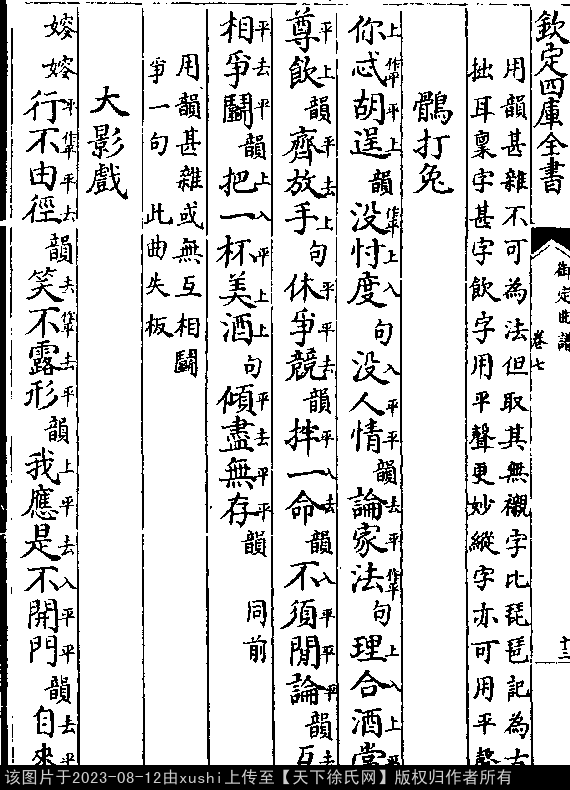 欽定四庫全書
御定曲譜 卷七 十三
用韻甚雜不可為法但取其無襯字比琵琶記為古
拙耳稟字甚字飲字用平聲更妙縱字亦可用平聲
鶻打兔
上作平平上 作平上入 入平平 去平作平 上入上平
你忒胡逞韻没忖度句没人情韻論家法句理合酒當
平上 平去上 平平去 平入去 入平平平
尊飲韻齊放手句休爭競韻拌一命韻不須閒論韻互
平去平 上入平上上 平去平平
相爭鬭韻把一杯美酒句傾盡無存韻 同前
用韻甚雜或無互相鬭
爭一句 此曲失板
大影戲
平作平平去 去作平去平 上平去入平平 去平
嫆嫆行不由徑韻笑不露形韻我應是不開門韻自來
该图片于2023-08-12由xushi上传至【天下徐氏网】版权归作者所有